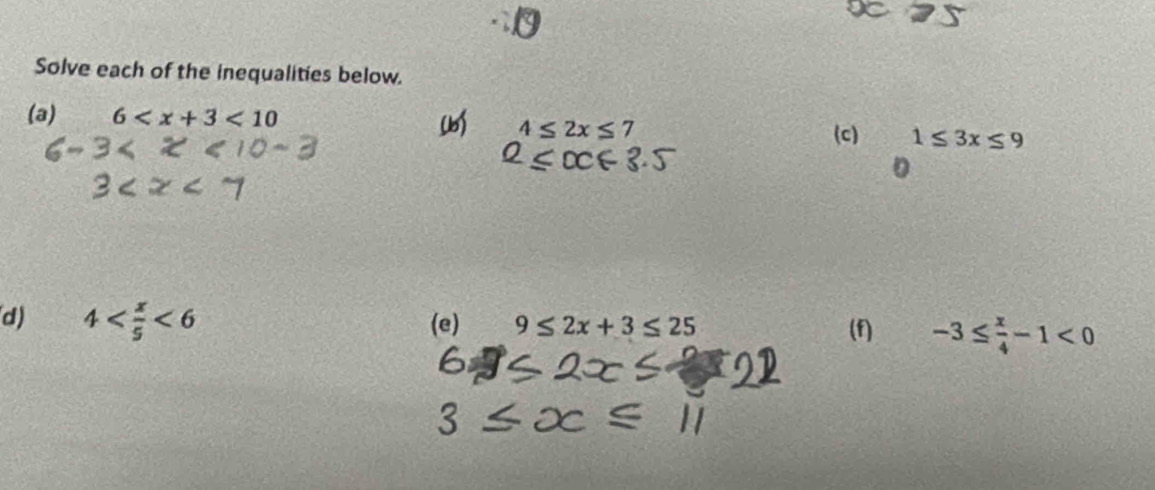 x ⩾ 5
Solve each of the inequalities below.
(a) 6 < x + 3 < 10
6 - 3 < x < 10 - 3
3 < x < 7
(b) 4 ≤ 2x ≤ 7
2 ≤ x ≤ 3.5
(c) 1 ≤ 3x ≤ 9
d) 4 < x/5 < 6
(e) 9 ≤ 2x + 3 ≤ 25
6 ≤ 2x ≤ 22
3 ≤ x ≤ 11
(f) -3 ≤ x/4 - 1 < 0